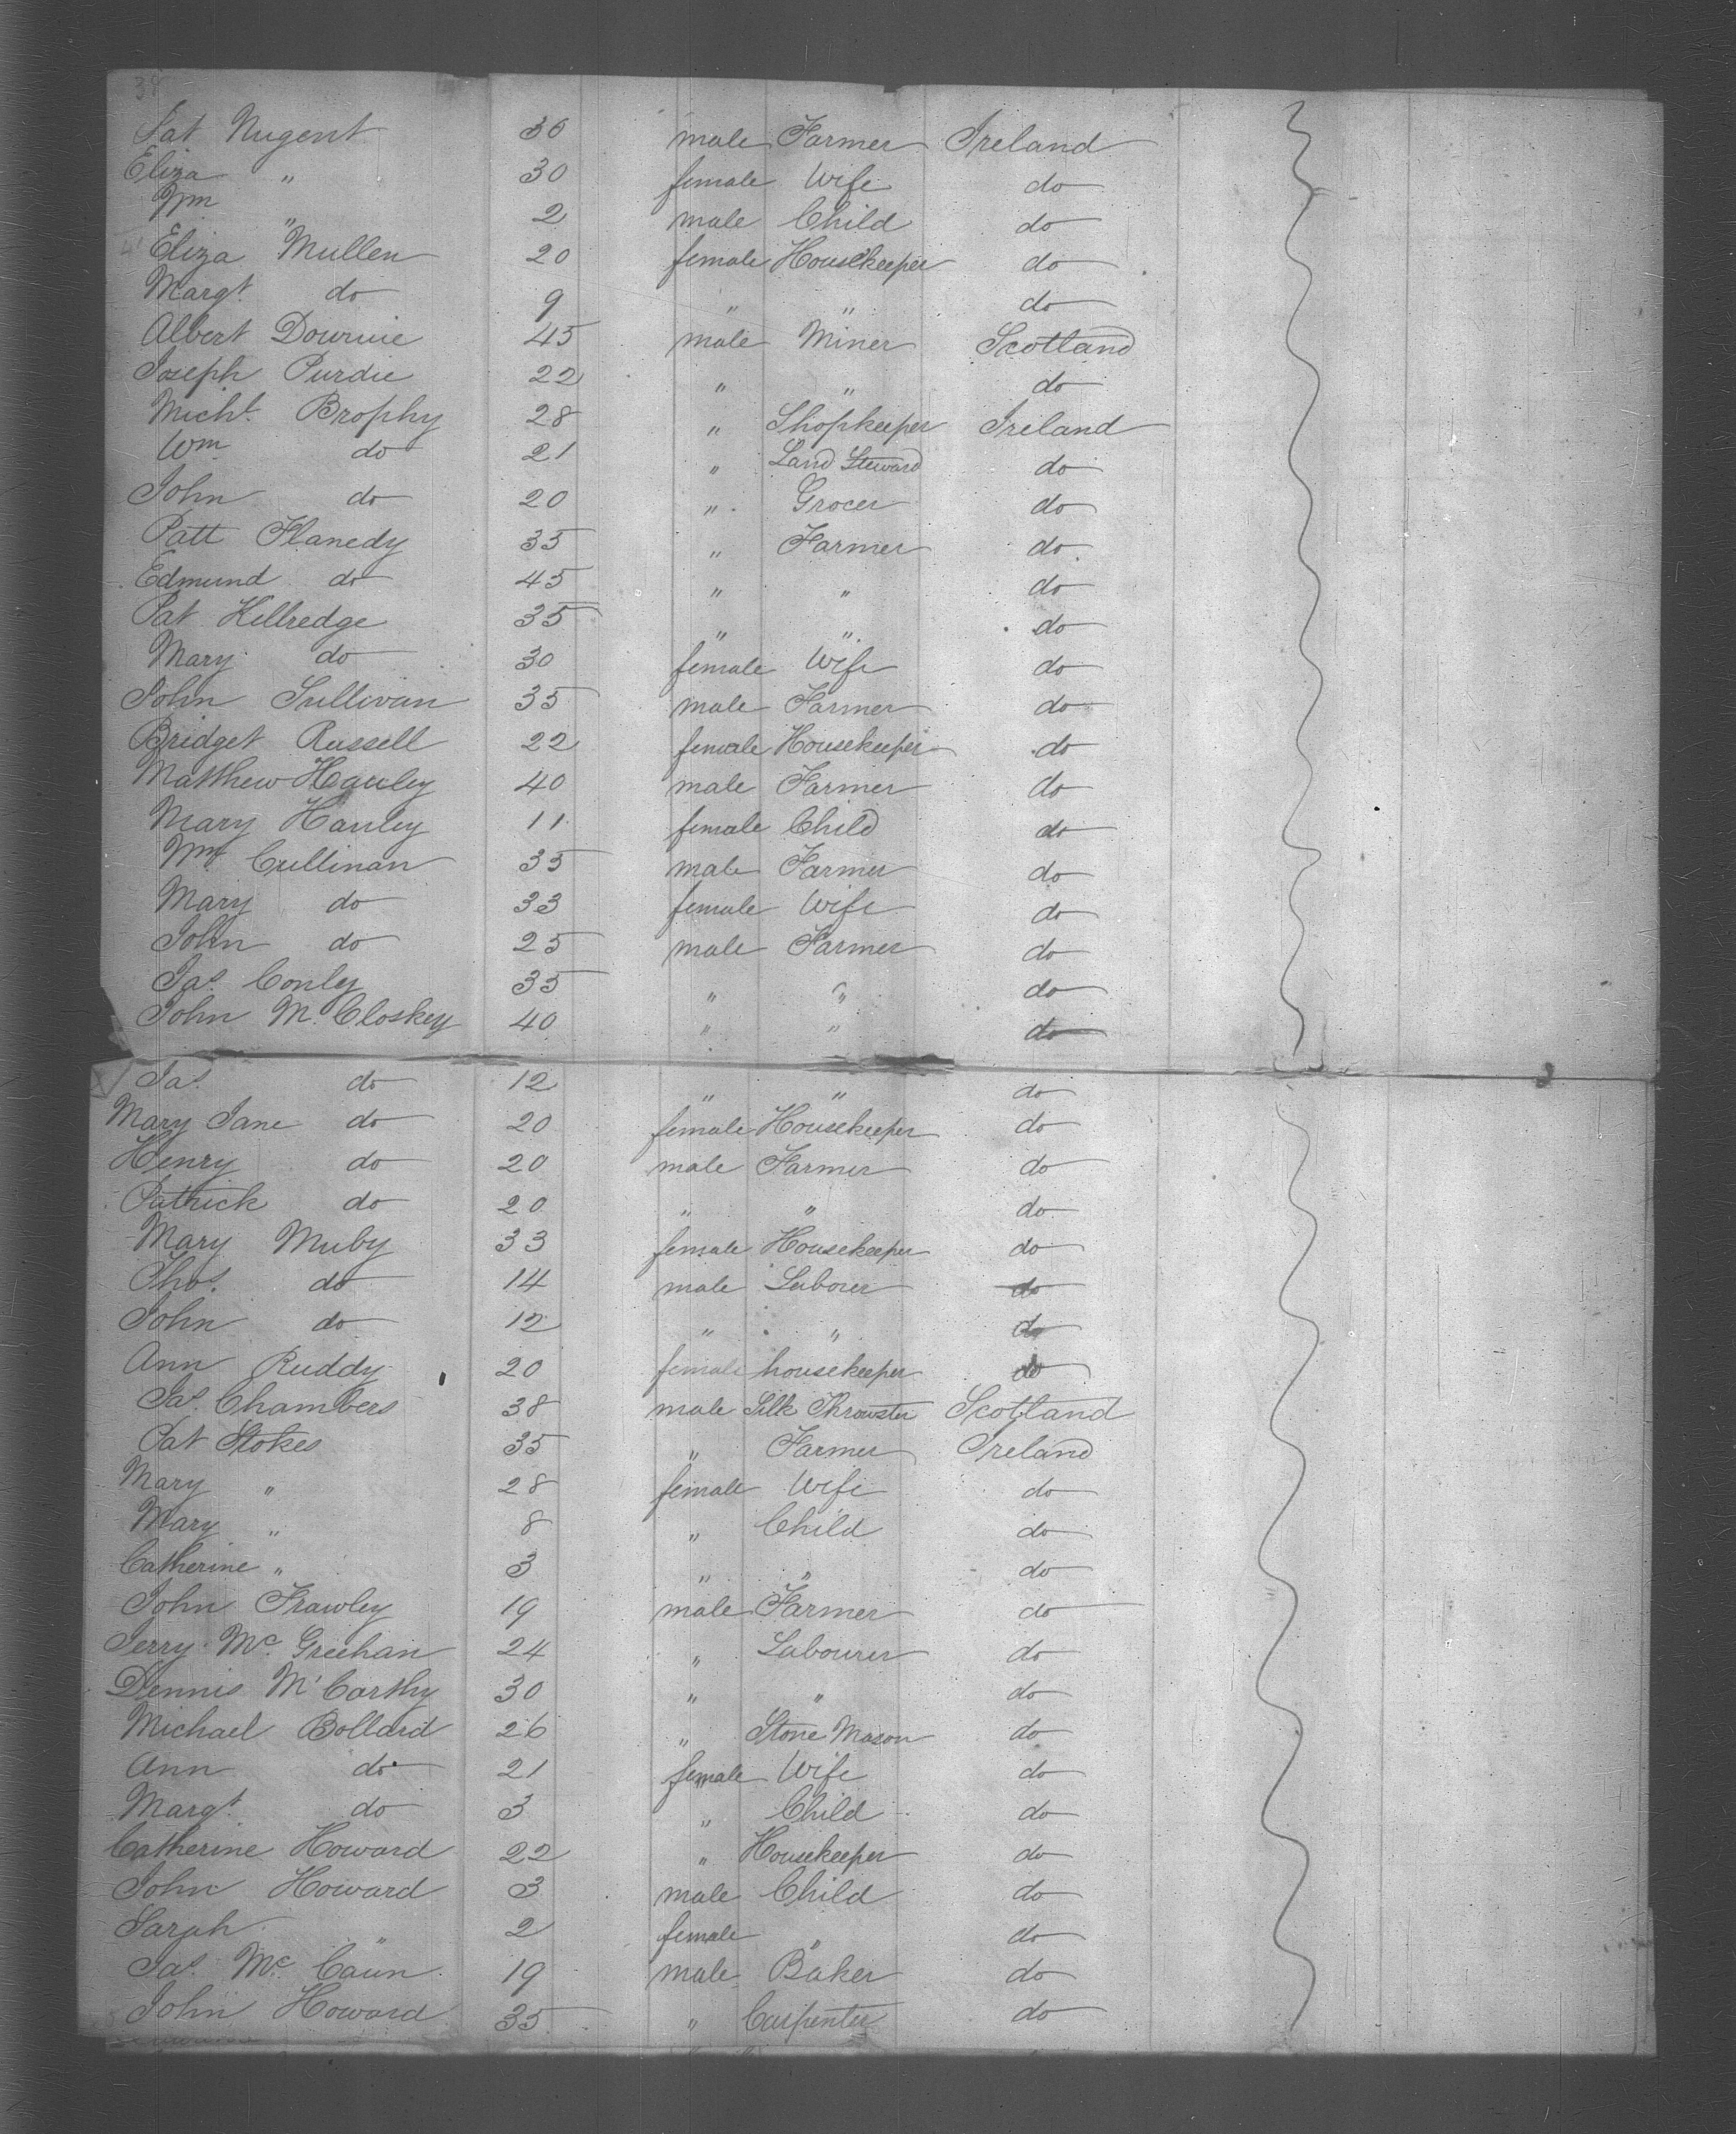 Pat Nugent 30 male Farmer Ireland
Eliza " 30 female Wife do
Wm " 2 male Child do
Eliza Mullen 20 female Housekeeper do
Margt. do 9 " " do
Albert Downie 45 male Miner Scotland
Joseph Purdie 22 " " do
Michl. Brophy 28 " Shopkeeper Ireland
Wm do 21 " Land Steward do
John do 20 " Grocer do
Patt Flanedy 35 " Farmer do
Edmund do 45 " " do
Pat Killredge 35 " " do
Mary do 30 female Wife do
John Sullivan 35 male Farmer do
Bridget Russell 22 female Housekeeper do
Matthew Hanley 40 male Farmer do
Mary Hanley 11 female Child do
Wm Cullinan 35 male Farmer do
Mary do 33 female Wife do
John do 25 male Farmer do
Jas. Conly 35 " " do
John Mc.Closkey 40 " " do
Jas. do 12 " " do
Mary Jane do 20 female Housekeeper do
Henry do 20 male Farmer do
Patrick do 20 " " do
Mary Muby 33 female Housekeeper do
Thos. do 14 male Laborer do
John do 12 " " do
Ann Ruddy 20 female housekeeper do
Jas. Chambers 38 male Silk Throwster Scotland
Pat Stokes 35 " Farmer Ireland
Mary " 28 female Wife do
Mary " 8 " Child do
Catherine " 3 " " do
John Frawley 19 male Farmer do
Jerry Mc. Greehan 24 " Labourer do
Dennis M'Carthy 30 " " do
Michael Bollard 26 " Stone Mason do
Ann do 21 female Wife do
Margt. do 3 " Child do
Catherine Howard 22 " Housekeeper do
John Howard 3 male Child do
Sarah " 2 female " do
Jas. Mc. Caun 19 male Baker do
John Howard 35 " Carpenter do